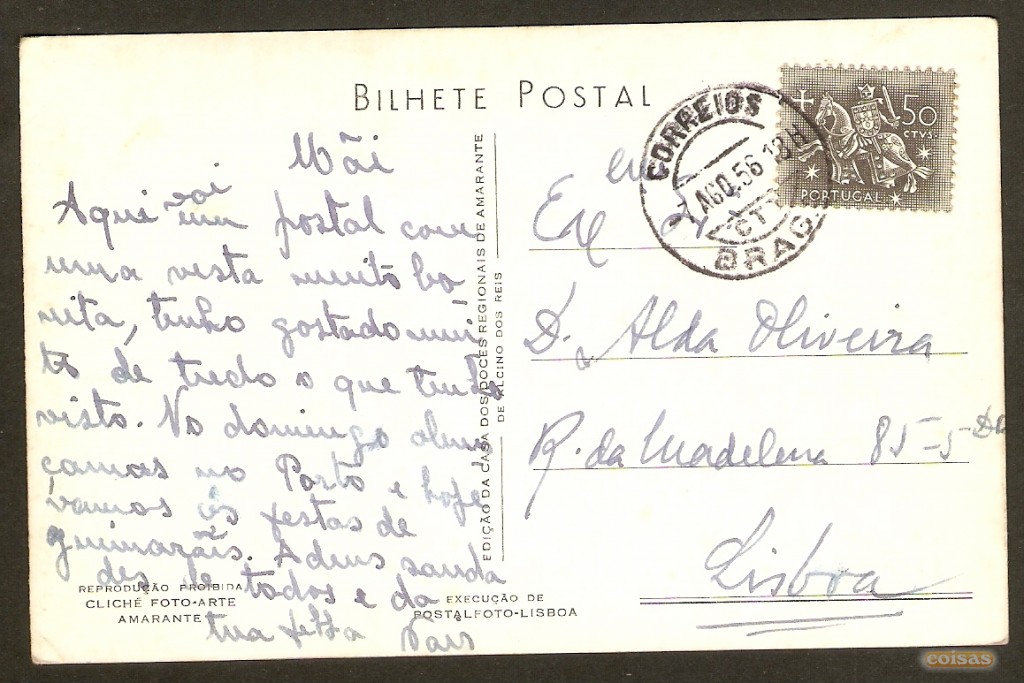 BILHETE POSTAL
Mãi
Aqui vai um postal com
uma vista muito bo
nita, tenho gostado mui
to de tudo o que tenho
visto. No domingo almo
çamos no Porto e hoje
vamos ás festas de
guimarãis. Adeus sauda
des de todos e da
tua
EDIÇÃO DA CASA DOS DOCES REGIONAIS DE AMARANTE
DE ALCINO DOS REIS
REPRODUÇÃO PROIBIDA
CLICHÉ FOTO-ARTE
AMARANTE
EXECUÇÃO DE
POSTALFOTO-LISBOA
CORREIOS
7 AGO.56 18H
CTT
BRAG
50
CTVS.
PORTUGAL
D. Alda Oliveira
R. da Madelena 85-5-
Lisboa
coisas